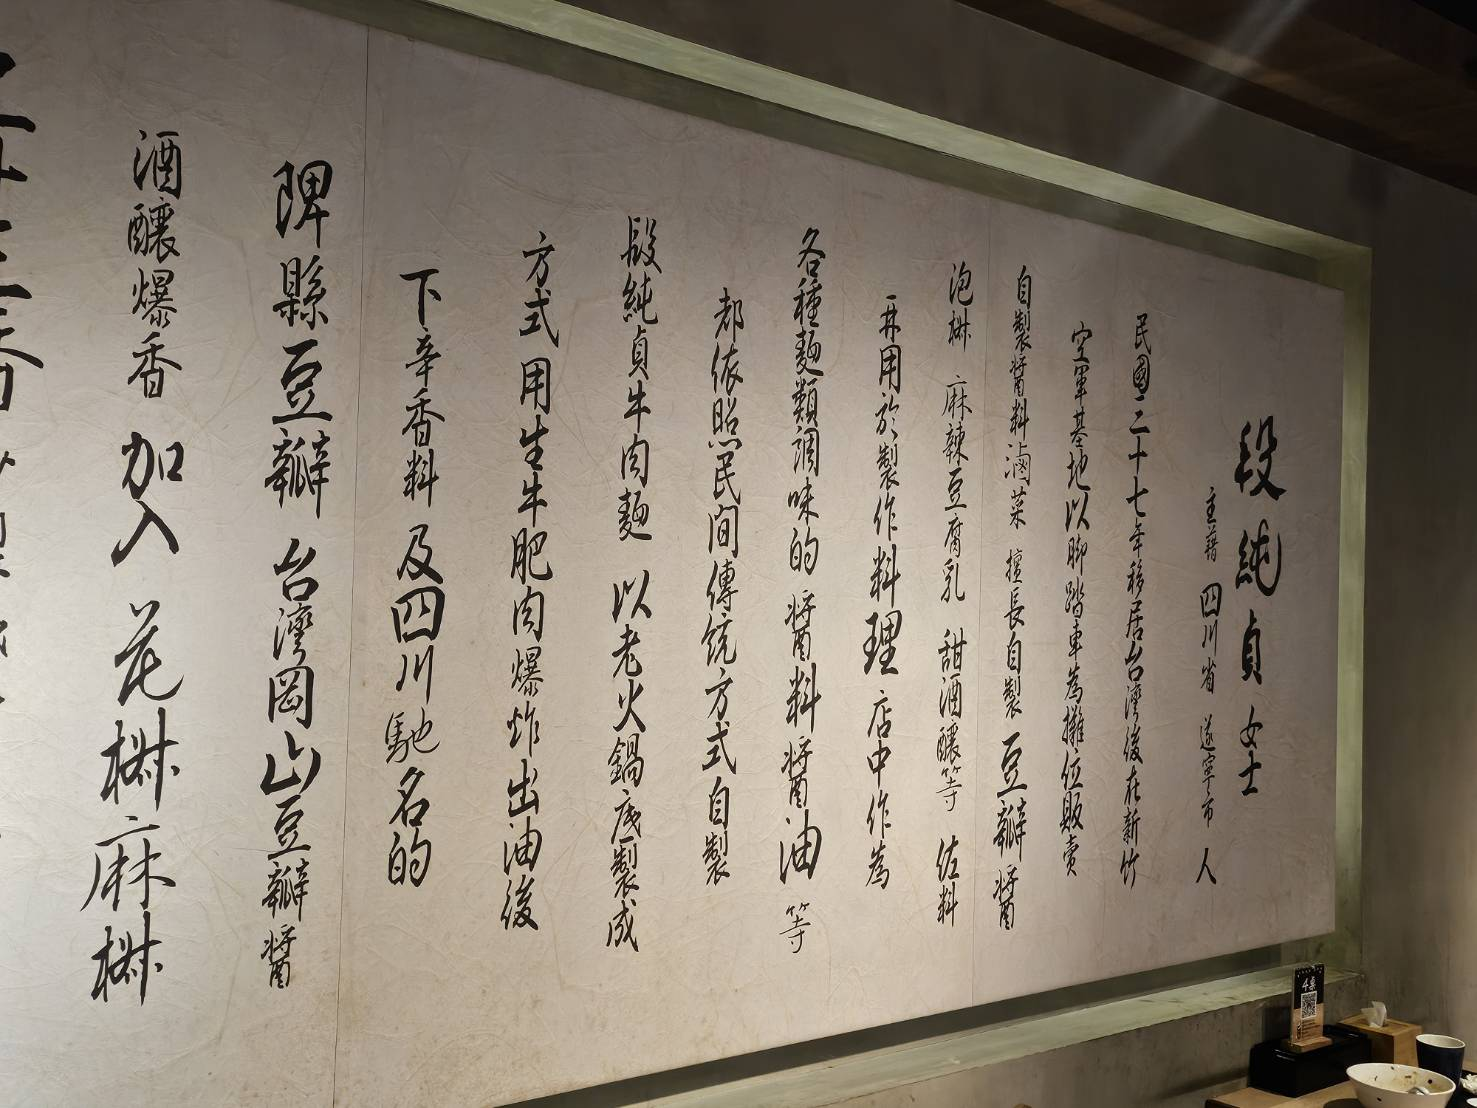 段純貞女士
主籍 四川省 遂寧市 人
民國二十七年移居台灣後在新竹
空軍基地以腳踏車為攤位販賣
自製醬料滷菜 擅長自製豆瓣醬
泡椒 麻辣豆腐乳 甜酒釀等 佐料
再用於製作料理 店中作為
各種麵類調味的醬料醬油等
都依照民間傳統方式自製
段純貞牛肉麵 以老火鍋底製成
方式用生牛肥肉爆炸出油後
下辛香料及四川馳名的
郫縣豆瓣 台灣岡山豆瓣醬
酒釀爆香 加入花椒麻椒
4桌